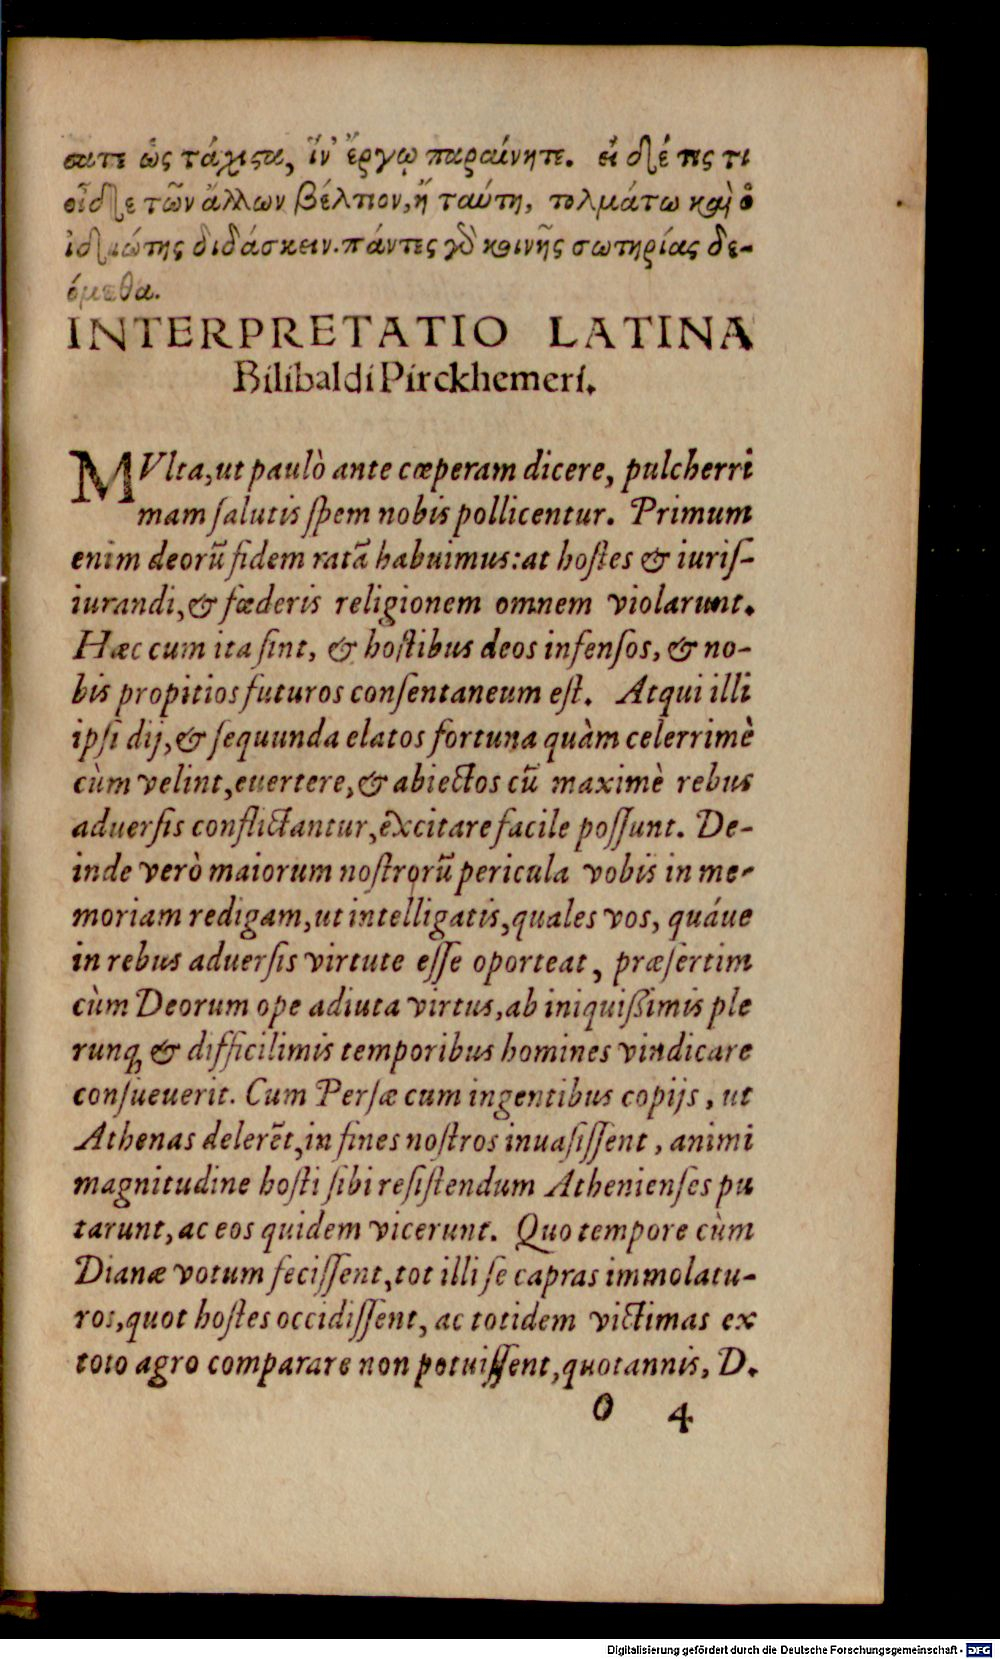 σατε ὡς τάχιστα, ἵν' ἔργῳ παραίνητε. εἰ δέ τις τι
οἶδε τῶν ἄλλων βέλτιον, ἢ ταύτῃ, τολμάτω καὶ ὁ
ἰδιώτης διδάσκειν. πάντες γὰρ κοινῆς σωτηρίας δε-
όμεθα.
INTERPRETATIO LATINA
Bilibaldi Pirckhemeri.
MVlta, ut paulò ante cœperam dicere, pulcherri
mam ſalutis ſpem nobis pollicentur. Primum
enim deorũ fidem ratã habuimus: at hoſtes & iuriſ-
iurandi, & fœderis religionem omnem violarunt.
Hæc cum ita ſint, & hoſtibus deos infenſos, & no-
bis propitios futuros conſentaneum eſt. Atqui illi
ipſi dij, & ſequunda elatos fortuna quàm celerrimè
cùm velint, euertere, & abiectos cũ maximè rebus
aduerſis conflictantur, excitare facile poſſunt. De-
inde verò maiorum noſtrorũ pericula vobis in me-
moriam redigam, ut intelligatis, quales vos, quáue
in rebus aduerſis virtute eſſe oporteat, præſertim
cùm Deorum ope adiuta virtus, ab iniquißimis ple
runq́ & difficilimis temporibus homines vindicare
conſueuerit. Cum Perſæ cum ingentibus copijs, ut
Athenas delerẽt, in fines noſtros inuaſiſſent, animi
magnitudine hoſti ſibi reſiſtendum Athenienſes pu
tarunt, ac eos quidem vicerunt. Quo tempore cùm
Dianæ votum feciſſent, tot illi ſe capras immolatu-
ros, quot hoſtes occidiſſent, ac totidem victimas ex
toto agro comparare non potuiſſent, quotannis, D.
O 4
Digitalisierung gefördert durch die Deutsche Forschungsgemeinschaft - DFG